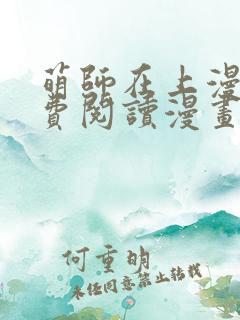 萌師在上漫
費閱讀漫畫
何重明
未經同意禁止轉載